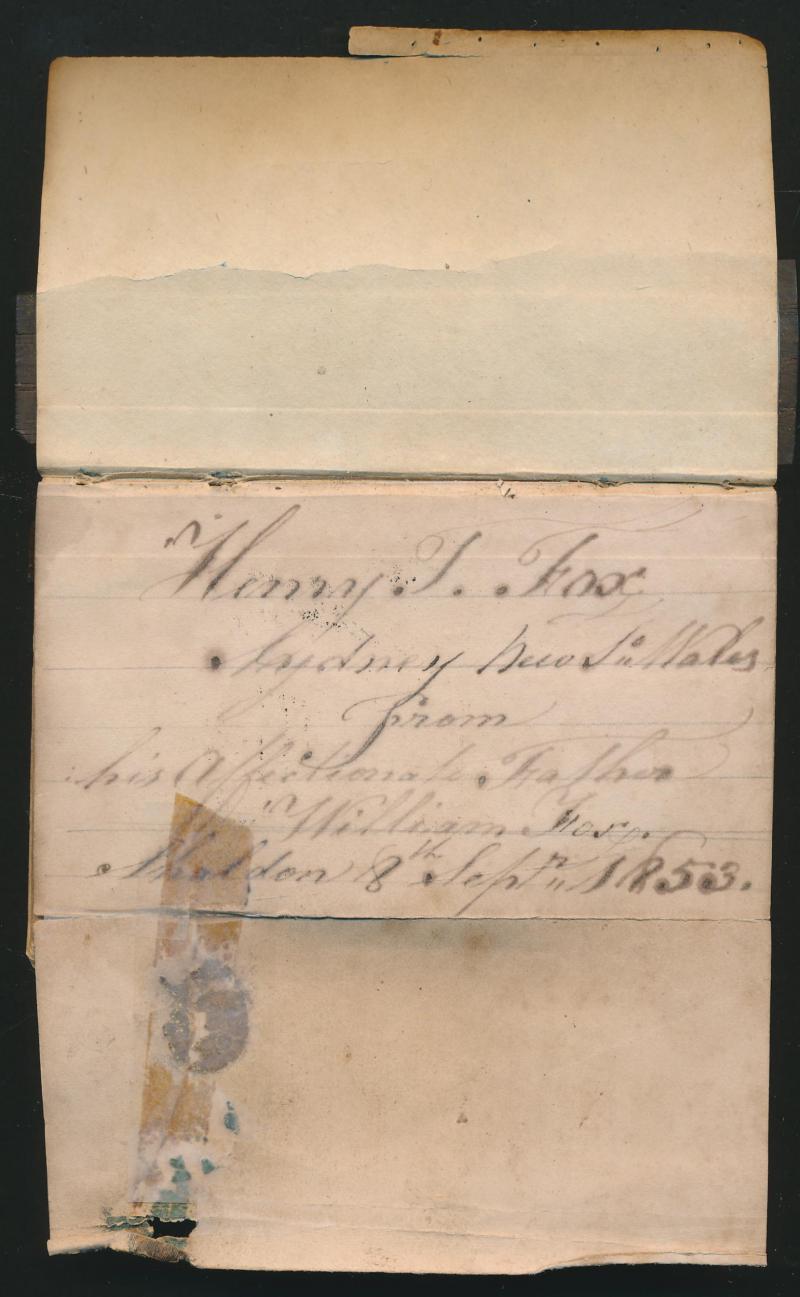 Henry T. Fox
Sydney New So. Wales
from
his Affectionate Father
William Fox.
Sheldon 8th Septr 1853.